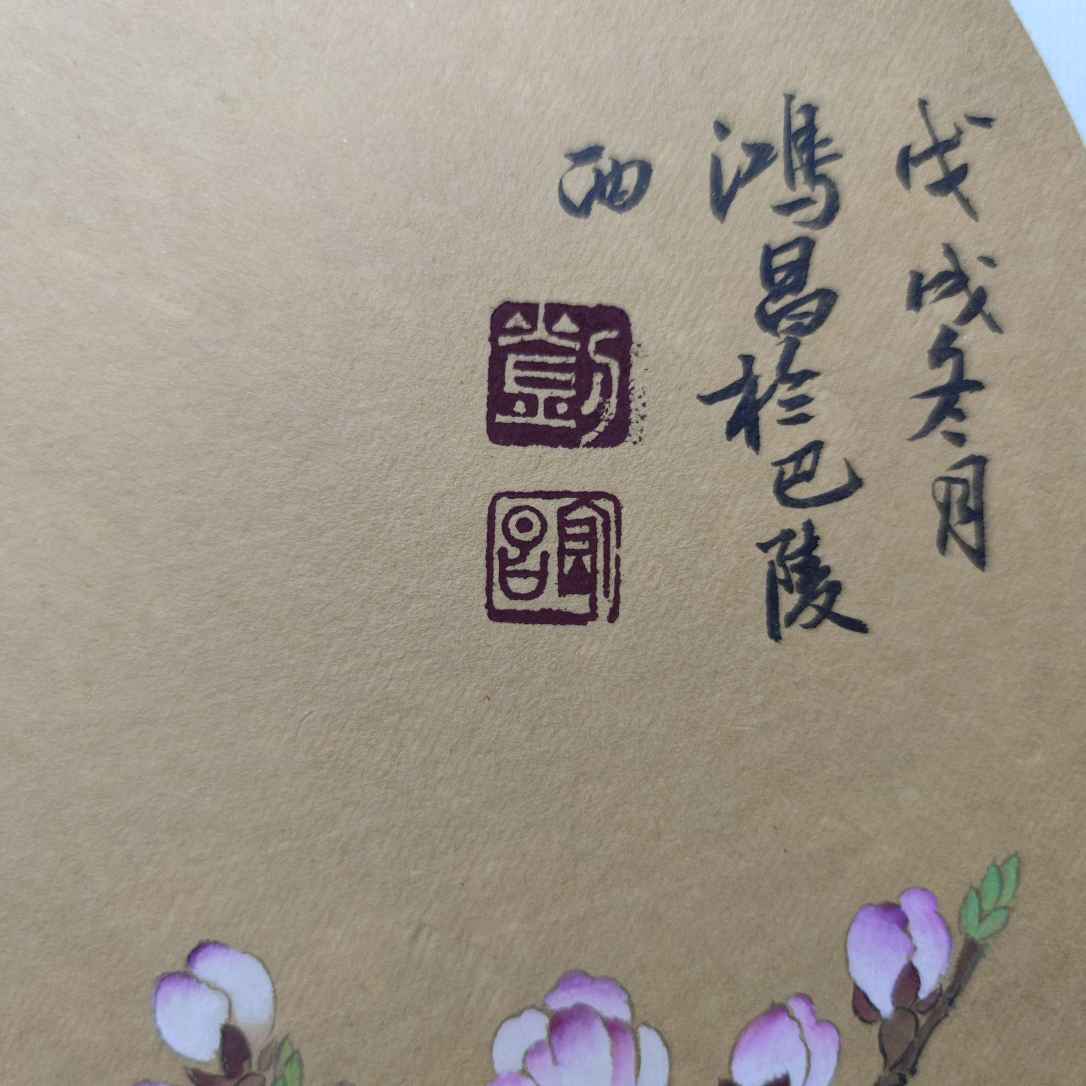 戊戌冬月
鴻昌於巴陵
画